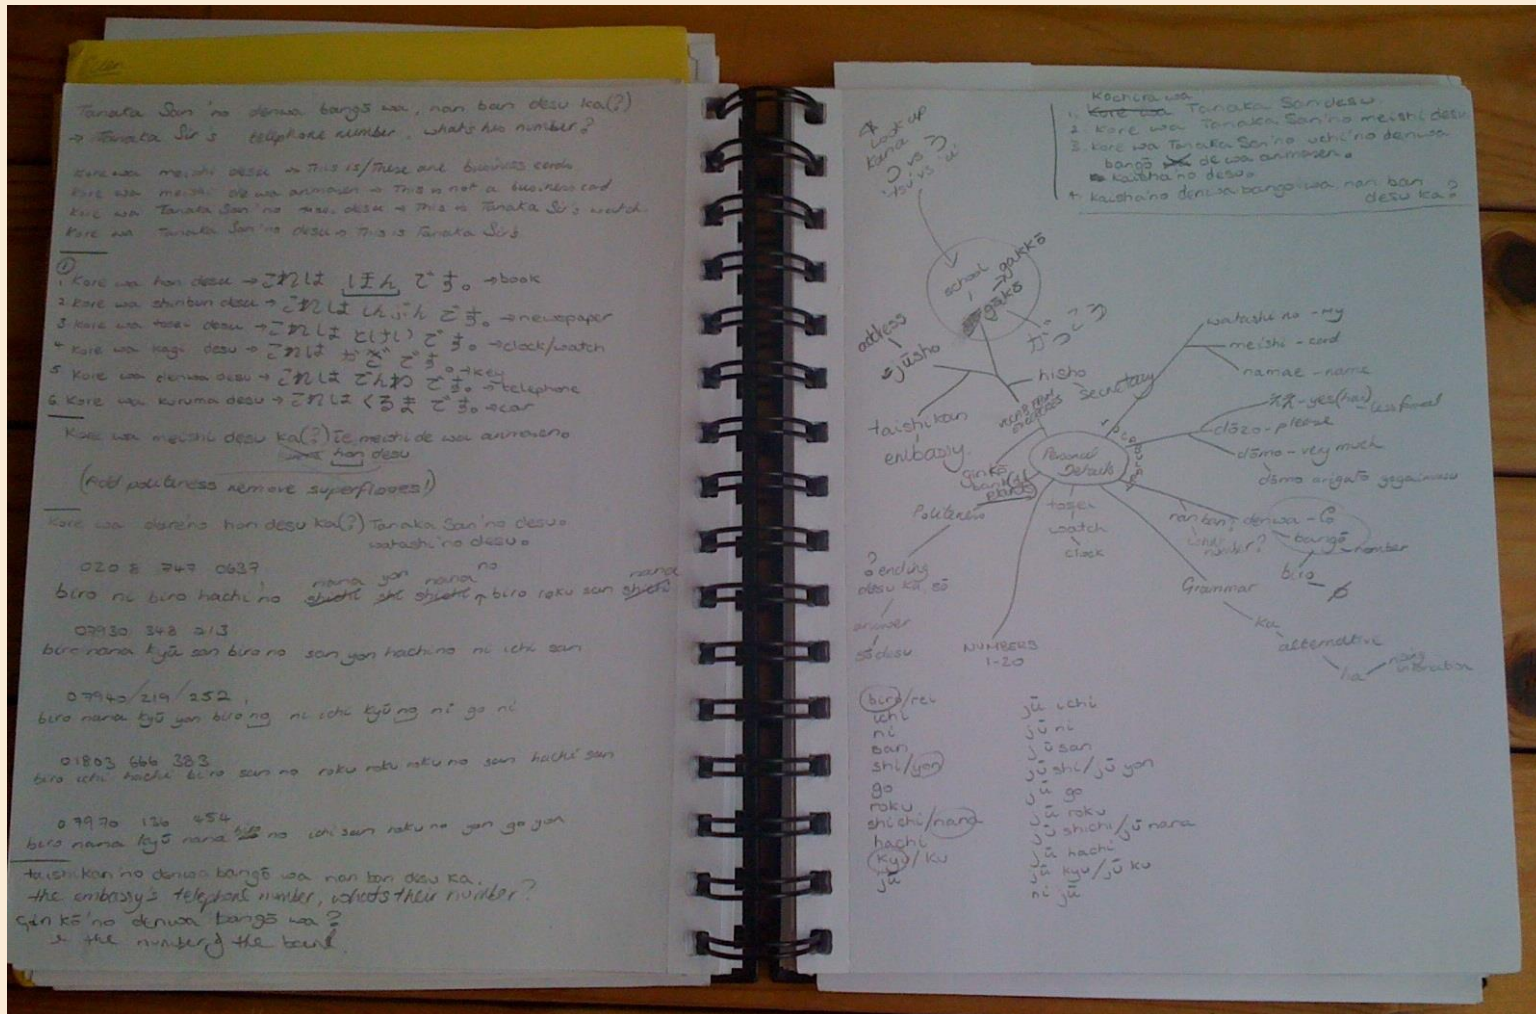 Tanaka San 'no denwa bangō wa, nan ban desu ka(?)
→ Tanaka Sir's telephone number, whats his number?
Kore wa meishi desu → This is/These are business cards
Kore wa meishi de wa arimasen → This is not a business card
Kore wa Tanaka San 'no desu → This is Tanaka Sir's watch.
Kore wa Tanaka San 'no desu → This is Tanaka Sir's
①
1. Kore wa hon desu → これは ほん です。 → book
2. Kore wa shinbun desu → これは しんぶん です。 → newpaper
3. Kore wa tosei desu → これは とけい です。 → clock/watch
4. Kore wa kagi desu → これは かぎ です。 → key
5. Kore wa denwa desu → これは でんわ です。 → telephone
6. Kore wa kuruma desu → これは くるま です。 → car
Kore wa meishi desu ka(?) īe meishi de wa arimasen.
hon desu
(Add politeness remove superfloues!)
Kore wa dare'no hon desu ka(?) Tanaka San'no desu.
watashi'no desu.
020 8 747 0637
nana yon nana no nana
biro ni biro hachi'no shichi shi shichi biro roku san shichi
07930 348 213
biro nana kyū san biro no san yon hachi no ni ichi san
07940/219/252
biro nana kyū yon biro no ni ichi kyū no ni go ni
01803 666 383
biro ichi hachi biro san no roku roku roku no san hachi san
07970 136 454
biro nana kyū nana biro no ichi san roku no yon go yon
taishikan'no denwa bangō wa nan ban desu ka.
the embassy's telephone number, whats their number?
Gin kō'no denwa bangō wa?
the number of the bank
Kochira wa
1. Kore wa Tanaka San desu.
2. Kore wa Tanaka San'no meishi desu
3. Kore wa Tanaka San'no uchi'no denwa
bangō de wa arimasen.
kaisha'no desu.
4. kaisha'no denwa bangō wa, nan ban
desu ka?
Look up
Kana
う vs つ
'tsu' vs 'u'
school → gakkō
gākō
がっこう
address
jūsho
taishikan
embassy
hisho
secretary
Personal
Details
watashi no - my
meishi - card
namae - name
yes (hai) less formal
dōzo - please
dōmo - very much
dōmo arigatō gozaimasu
nan ban,
number?
denwa
bangō
number
biro
Ginkō
bank
Politeness
ending
desu ka, sō
answer
sō desu
tosei
watch
clock
Grammar
ka
alternative
NUMBERS
1-20
biro/rei
ichi
ni
san
shi/yon
go
roku
shichi/nana
hachi
kyū/ku
jū
jū ichi
jū ni
jū san
jū shi/jū yon
jū go
jū roku
jū shichi/jū nana
jū hachi
jū kyu/jū ku
ni jū